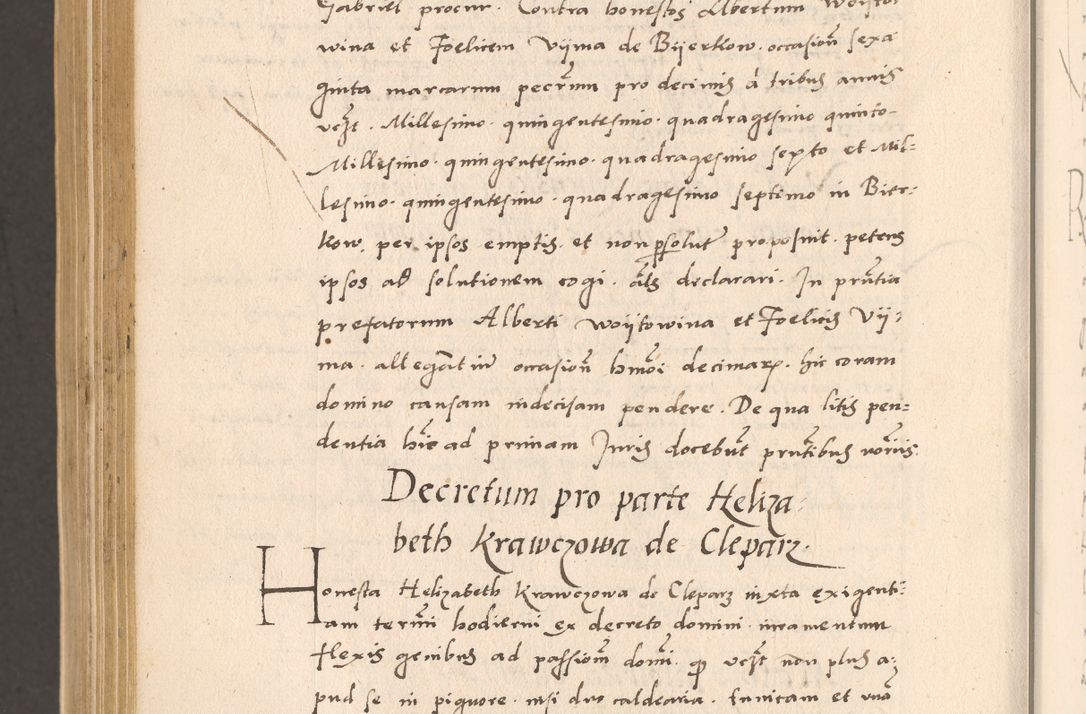 Gabriel procur. Contra honestos Albertum Woyto-
wina et Foelicem Vyma de Byerkow. occasioñ sexa
ginta marcarum pecũm pro decimis à tribus annis
vcźt. Millesimo. quingentesimo. quadragesimo quinto-
Millesimo. quingentesimo. quadragesimo sexto et Mil=
lesimo. quingentesimo. quadragesimo septimo in Bier:
kow. per ipsos emptis. et non psolut proposuit. petens
ipsos ad solutionem cogi. als declarari. In pñtia
prefatorum Alberti Woytowina et Foelicis Vy:
ma. allegãtiũ occasioñ hmõi decimarꝝ. hic coram
domino causam indecisam pendere. De qua litis pen=
dentia hic ad primam Juris docebũt pñtibus
Decretum pro parte Heliza:
beth Krawczowa de Cleparz.
Honesta Helizabeth Krawczowa de Cleparz iuxta exigenti:
am termĩ hodierni ex decreto domini. iuramentum
flexis genibus ad passioñ domĩ. qꝫ vcźt non plus a:
pud se in pignore. nisi duo caldearia. tunicam et vnã